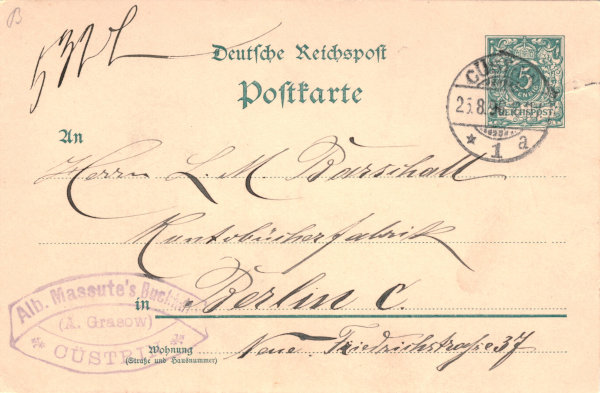 B
Deutsche Reichspost
Postkarte
5
REICHSPOST
CÜST
25.8.9
* 1 a
An
Herrn L. M. Barschall
Kontobücherfabrik
in Berlin C.
Alb. Massute's Buchh
(A. Grasow)
CÜSTRI
Wohnung
(Straße und Hausnummer)
Neue Friedrichstraße 37